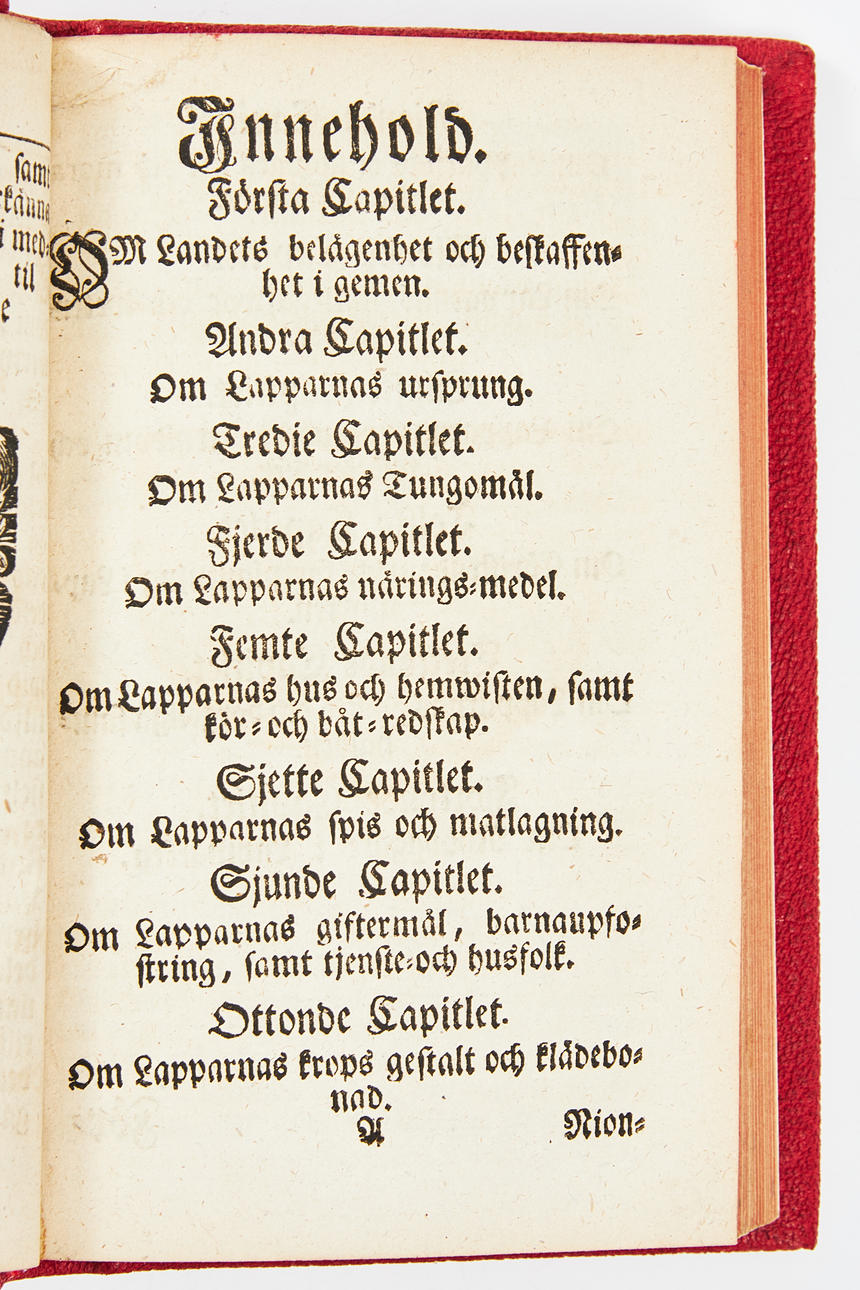 sam
känne
i med-
til
e
Innehold.
Första Capitlet.
OM Landets belägenhet och beskaffen-
het i gemen.
Andra Capitlet.
Om Lapparnas ursprung.
Tredie Capitlet.
Om Lapparnas Tungomål.
Fjerde Capitlet.
Om Lapparnas närings-medel.
Femte Capitlet.
Om Lapparnas hus och hemwisten, samt
kör- och båt-redskap.
Sjette Capitlet.
Om Lapparnas spis och matlagning.
Sjunde Capitlet.
Om Lapparnas giftermål, barnaupfo-
string, samt tjenste- och husfolk.
Ottonde Capitlet.
Om Lapparnas krops gestalt och klädebo-
nad.
A Nion-